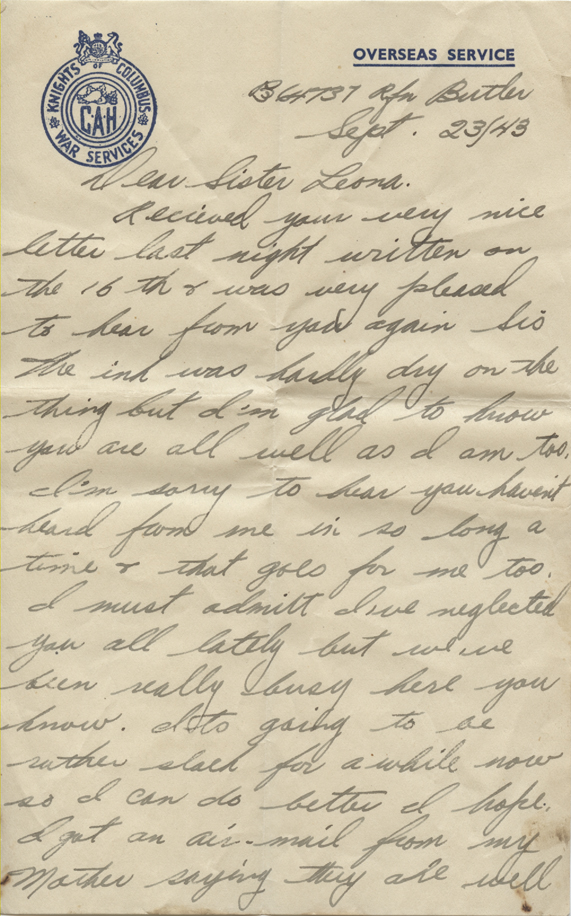 OVERSEAS SERVICE
KNIGHTS OF COLUMBUS
CAH
WAR SERVICES
B64737 Rfn Butler
Sept. 23/43
Dear Sister Leona.
Recieved your very nice
letter last night written on
the 16 th & was very pleased
to hear from you again Sis
the ink was hardly dry on the
thing but I'm glad to know
you are all well as I am too.
I'm sorry to hear you haven't
heard from me in so long a
time & that goes for me too.
I must admitt I've neglected
you all lately but we've
been really busy here you
know. Its going to be
rather slack for a while now
so I can do better I hope.
I got an air-mail from my
Mother saying they are well